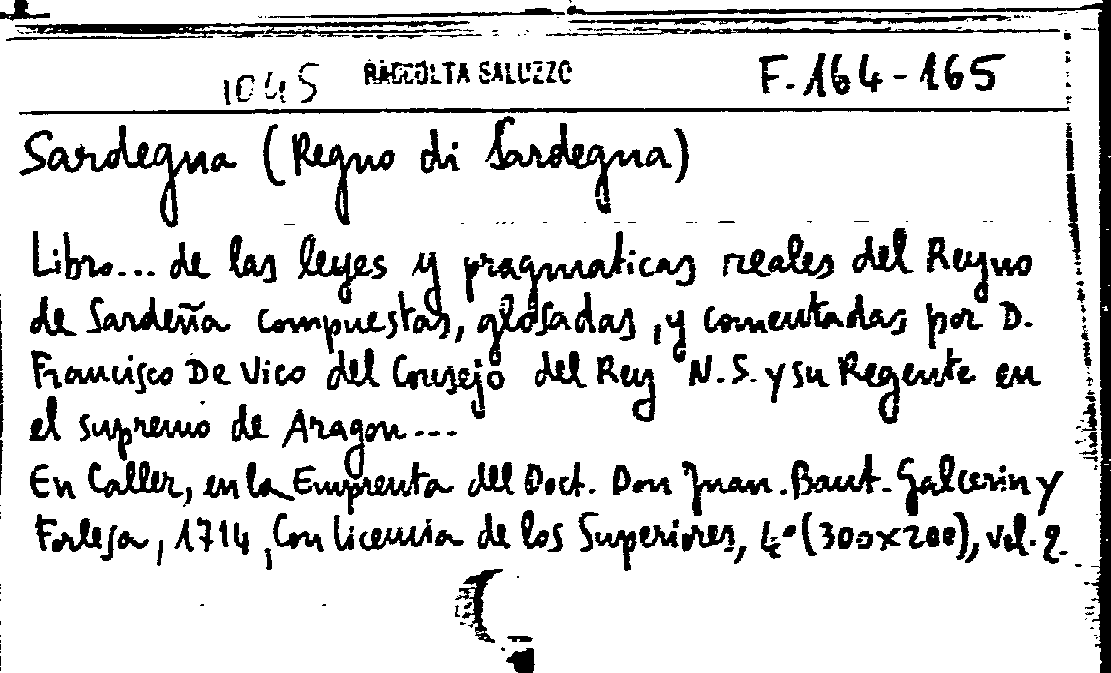 1045 RACCOLTA SALUZZO F.164-165
Sardegna (Regno di Sardegna)
Libro... de las leyes y pragmaticas reales del Reyno
de Sardeña compuestas, glosadas, y comentadas por D.
Francisco De Vico del Consejo del Rey N.S. y su Regente en
el supremo de Aragon...
En Caller, en la Emprenta del Doct. Don Juan. Baut. Galcerin y
Forlesa, 1714, Con licencia de los Superiores, 4° (300x200), vol. 2.